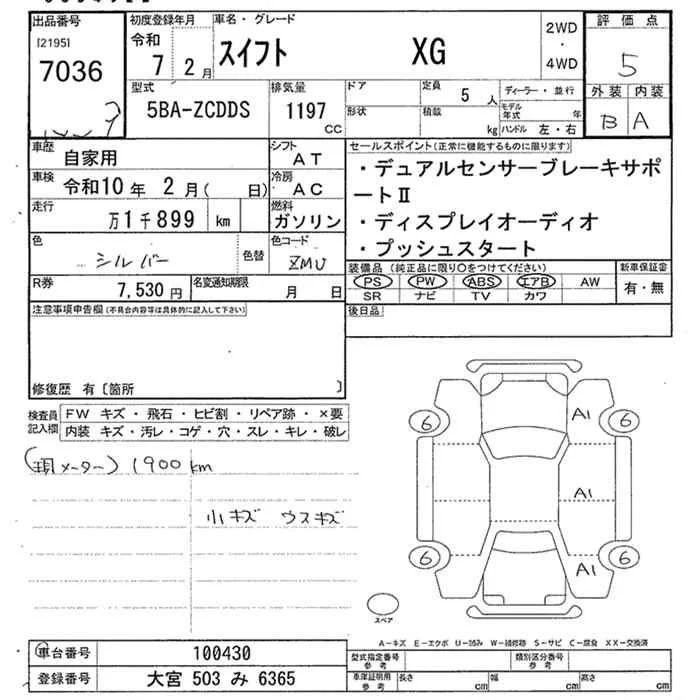 出品番号
[21951]
7036
初度登録年月
令和
7 2月
車名・グレード
スイフト XG
2WD
・
4WD
評価点
5
外装 内装
B A
型式
5BA-ZCDDS
排気量
1197
CC
ドア
形状
定員
5人
積載
kg
ディーラー・並行
モデル年式 年
ハンドル 左・右
車歴 自家用
シフト AT
車検 令和10年 2月( 日)
冷房 AC
走行 万1千899 km
燃料 ガソリン
色 シルバー 色替
色コード ZMU
R券 7,530円
名変通知期限 月 日
セールスポイント(正常に機能するものに限ります)
・デュアルセンサーブレーキサポ
ートⅡ
・ディスプレイオーディオ
・プッシュスタート
装備品(純正品に限り○をつけてください)
PS PW ABS エアB AW
SR ナビ TV カワ
新車保証書
有・無
後日品
注意事項申告欄(不具合内容等は具体的に記入して下さい)
修復歴 有〔箇所 〕
検査員記入欄
FW キズ・飛石・ヒビ割・リペア跡・×要
内装 キズ・汚レ・コゲ・穴・スレ・キレ・破レ
(現メーター) 1900km
小キズ ウスキズ
6 A1 6
A1
6 A1 6
スペア
A-キズ E-エクボ U-凹み W-補修跡 S-サビ C-腐食 XX-交換済
車台番号 100430
登録番号 大宮 503 み 6365
型式指定番号 参考
類別区分番号 参考
車庫証明用 参考
長さ cm
幅 cm
高さ cm